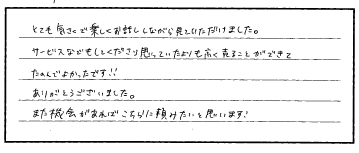 とても気さくで楽しくお話ししながら見ていただけました。
サービスなどもしてくださり思っていたよりも高く売ることができて
たのんでよかったです!!
ありがとうございました。
また機会があればこちらに頼みたいと思います!